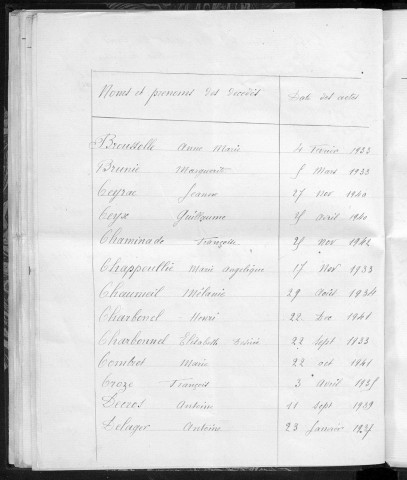 Noms et prenoms des decédés Date des actes
Broustolle Anne Marie 4 Fevrier 1933
Brunie Marguerite 5 Mars 1933
Ceyrac Jeanne 27 Nov 1940
Ceyx Guillaume 25 avril 1940
Chaminade Françoise 25 Nov 1942
Chappoullié Marie Angelique 17 Nov 1933
Chaumeil Mélanie 29 Août 1934
Charbonel Henri 22 Dec 1941
Charbonnel Elisabeth 22 Sept 1933
Combret Marie 22 oct 1941
Croze François 3 Avril 1935
Decros Antoine 11 Sept 1939
Antoine 23 Janvier 1937